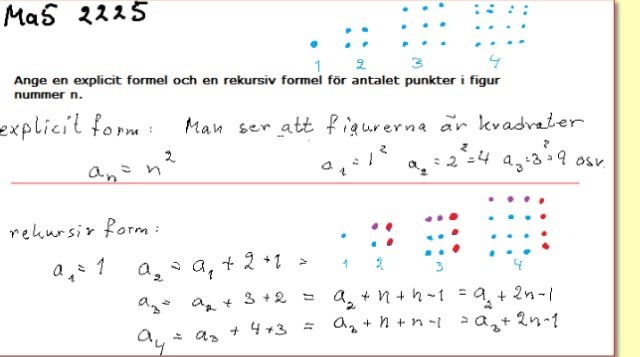 Ma5 2225
1 2 3 4
Ange en explicit formel och en rekursiv formel för antalet punkter i figur
nummer n.
explicit form: Man ser att figurerna är kvadrater
aₙ = n² a₁ = 1² a₂ = 2² = 4 a₃ = 3² = 9 osv.
rekursiv form:
1 2 3 4
a₁ = 1 a₂ = a₁ + 2 + 1 =
a₃ = a₂ + 3 + 2 = a₂ + n + n - 1 = a₂ + 2n - 1
a₄ = a₃ + 4 + 3 = a₃ + n + n - 1 = a₃ + 2n - 1